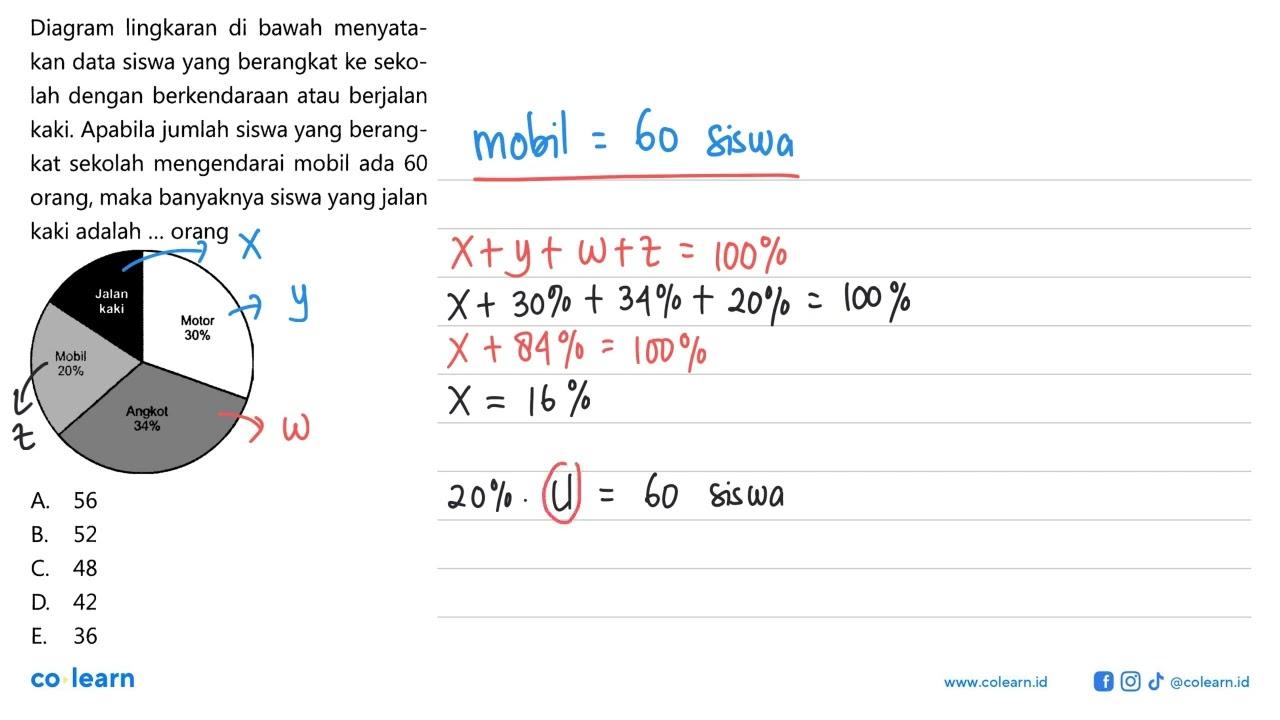 Diagram lingkaran di bawah menyata-
kan data siswa yang berangkat ke seko-
lah dengan berkendaraan atau berjalan
kaki. Apabila jumlah siswa yang berang-
kat sekolah mengendarai mobil ada 60
orang, maka banyaknya siswa yang jalan
kaki adalah ... orang
x
Jalan
kaki
y
Motor
30%
Mobil
20%
Angkot
34%
w
z
A. 56
B. 52
C. 48
D. 42
E. 36
mobil = 60 siswa
x + y + w + z = 100%
x + 30% + 34% + 20% = 100%
x + 84% = 100%
x = 16%
20% . U = 60 siswa
co learn
www.colearn.id
@colearn.id